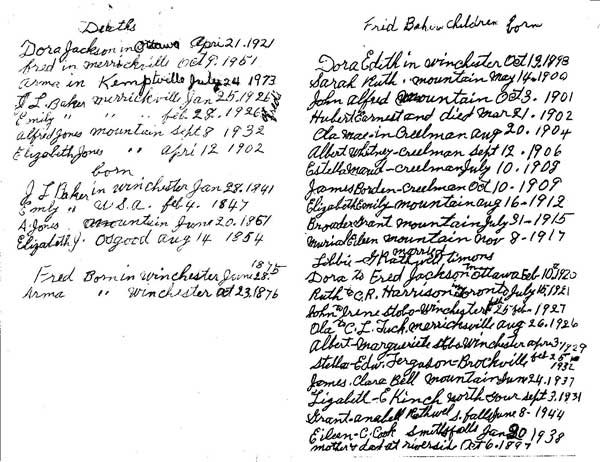 Deaths
Dora Jackson in Ottawa Apri 21. 1921
Fred in merrickville Oct 9. 1951
Arma in Kemptville July 24 1973
J L Baker merrickville Jan 25. 1926
Emily " " " feb 28. 1926
Alfred Jones mountain Sept 8 1932
Elizabeth Jones " " April 12 1902
born
J L Baker in winchester Jan 28. 1841
Emly " U.S.A. feb 4. 1847
A. Jones. mountain June 20. 1851
Elizabeth J. Osgood aug 14 1854
Fred Born in Winchester June 28. 1875
Arma " Winchester Oct 23. 1876
Fred Baker children born
Dora Edith in winchester Oct 12. 1898
Sarah Ruth. mountain may 14. 1900
John alfred mountain Oct 3. 1901
Hubert Earnest and died mar 21. 1902
Ola mae. in Creelman aug 20. 1904
Albert Whitney - Creelman Sept 12. 1906
Estella - Creelman July 10. 1908
James Borden - Creelman Oct 10. 1909
Elizabeth Emily mountain aug 16 - 1912
Grant mountain July 31 - 1915
Murial Eileen mountain nov 8 - 1917
married
Dora to Fred Jackson in Ottawa Feb 10, 1920
Ruth to C.R. Harrison in Toronto July 15, 1921
John to Irene Stobo - Winchester feb 25 - 1927
Ola to C. L. Tuck. merricksville aug 26. 1926
Albert - Marguerite Stobo Winchester apri 3, 1929
Stella - Edw. Ferguson - Brockville feb 25 1932
James. Clara Bell mountain June 24. 1937
Lizabeth - E Kinch north Gour sept 3. 1931
Grant - anabell Rothwell S. falls June 8 - 1944
Eileen - C. Cook Smiths falls Jan 20 1938
mother & dad at riversid Oct 6. 1897